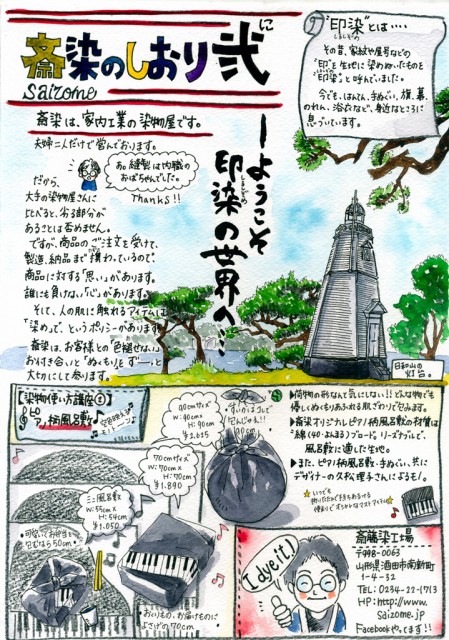 斎染のしおり 弐に
sairome
斎染は、家内工業の染物屋です。
夫婦二人だけで営んでおります。
あ。縫製は内職の
おばちゃんでした。
Thanks!!
だから、
大手の染物屋さんに
比べると、劣る部分が
あることは否めません。
ですが、商品のご注文を受けて、
製造、納品まで携わっているので、
商品に対する「思い」があります。
誰にも負けない「心」があります。
そして、人の肌に触れるアイテムは
「染め」で、というポリシーがあります。
斎染は、お客様との「色褪せない」
お付き合いと「ぬくもり」をず~っと
大切にして参ります。
ーようこそ
印染の世界へ…
しるしぞめ
"印染"とは…
しるしぞめ
その昔、家紋や屋号などの
"印"を生地に染めぬいたものを
"印染"と呼んでいました。
今でも、はんてん、手ぬぐい、旗、幕、
のれん、浴衣など、身近なところに
息づいています。
日和山の
灯台。
【染物使い方講座②】
ピアノ柄風呂敷
90cmサイズ
W:90cm
H:90cm
70cmサイズ
W:70cm
H:70cm
¥1,890
ミニ風呂敷
W:55cm
H:54cm
¥1,050
可愛いお弁当を
包むなら50cm
おくりもの、お届けものに
よさげの70cm
▶荷物の形なんて気にしない!!どんな物でも
優しくぬくもりあふれる肌ざわりで包みます。
▶斎染オリジナルピアノ柄風呂敷の材質は
"綿(40ぶんまる)ブロード"。リーズナブルで、
風呂敷に適した生地。
▶また、ピアノ柄風呂敷・手ぬぐい、共に
デザイナーの久松理子さんによるモノ。
I dye it!
斎藤染工場
〒998-0063
山形県酒田市南新町
1-4-32
TEL: 0234-22-1713
HP: http://www.
sairome.jp
Facebookや、ってます!!